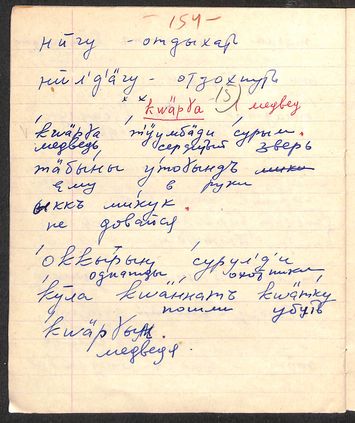 - 154 -
нӣгу - отдыхать
нӣл'д'ӓгу - отдохнуть
кwӓрɣа 15) медвед
кwӓрɣа тӱумбӓди сурым.
медведь, сердитый зверь
тӓбыны утоɣындъ
ему в руки
ыккъ микук.
не довайся
оккырыӷ сурулʼдʼи
однажды охотники
кула кwӓннатъ кwӓтку
пошли убить
кwӓрɣым.
медведя.